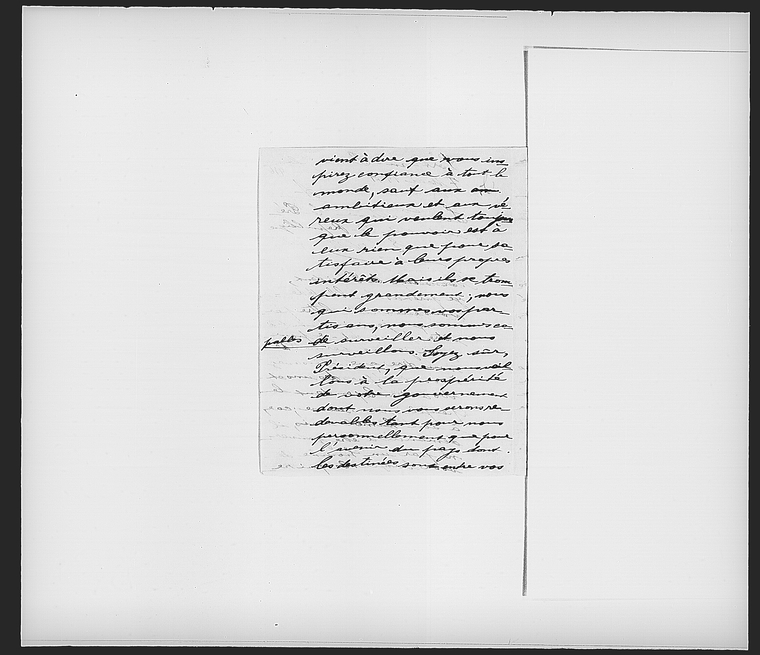 vient à dire que vous ins
pirez confiance à tout le
monde, sauf aux am
ambitieux et aux vé
reux qui veulent toujours
que le pouvoir est à
eux rien que pour sa
tisfaire à leurs propres
intérêts. Mais ils se trom
pent grandement; nous
qui sommes vos par
tisans, nous sommes ca
pables de surveiller et nous
surveillons. Soyez sûr,
Président, que nous veil
lons à la prospérité
de votre gouvernement
dont nous vous serons re
devables tant pour nous
personnellement que pour
l'avenir du pays dont
les destinées sont entre vos